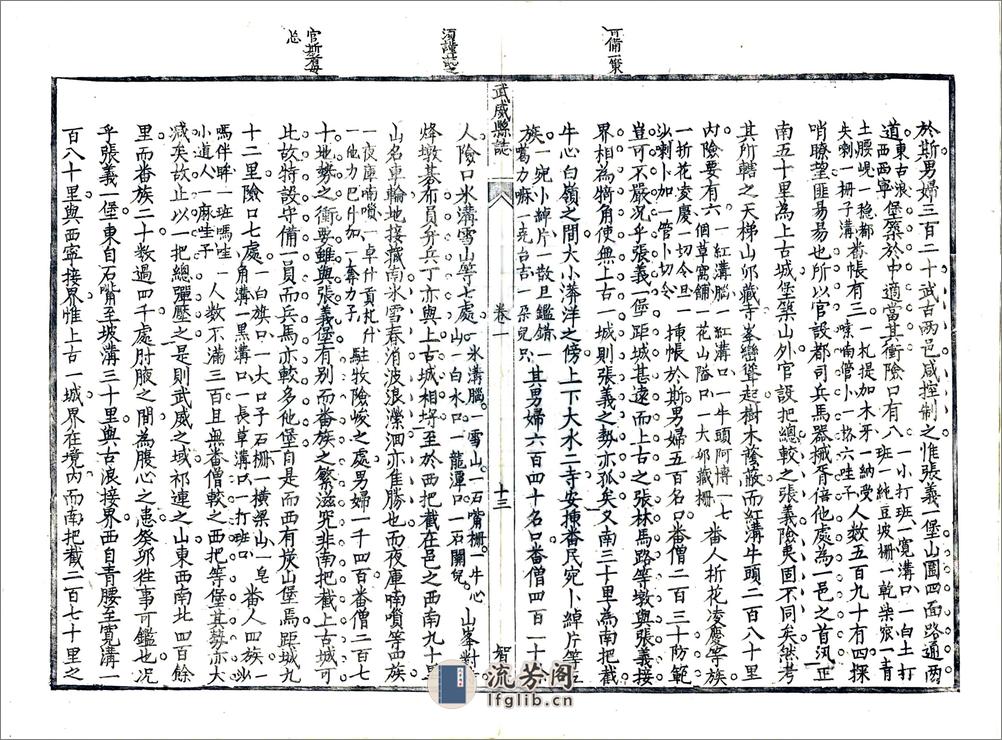 可備一策
須謹誌之
於斯男婦三百二十武古兩邑咸控制之惟張義一堡山圍四面路通兩
道東古浪堡西西寧築於中適當其衝險口有八一小打班一寬溝口一白土打
班一純豆坡柵一乾柴窊一青土腰峴一稳都
矢喇一柵子溝番帳有三一札提加木牙一納受一味喃管小一拣六哇子人數五百九十有四探
哨瞭望匪易易也所以官設都司兵馬器械胥倍他處為一邑之首汛正
南五十里為上古城堡築山外官設把總較之張義險夷固不同矣然考
其所轄之天梯山卯藏寺峯巒聳起樹木蔭蔽而紅溝牛頭二百八十里
內險要有六一紅溝腦一紅溝口一牛頭阿博一七個草窩鋪一花山隘口一大卯藏柵番人折花凌慶等六族
一折花凌慶一切令旦一沙喇卜加一管卜切令揀帳於斯男婦五百名口番僧二百三十防範
豈可不嚴况乎張義一堡距城甚遠而上古之張林馬路等墩與張義接
界相為犄角使無上古一城則張義之勢亦孤矣又南三十里為南把截
牛心白嶺之間大小漭洋之傍上下大水二寺安揀番民宛卜綽片等五
族一宛小綽片一散旦鑑錯一鷟力嘛一克台吉一朵兒只其男婦六百四十名口番僧四百一十
武威縣誌
卷一
十三
智
人險口氷溝雪山等七處一氷溝腦一雪山一石嘴柵一牛心山一白水口一龍潭口一石關兒峯對
烽墩棊布員弁兵丁亦與上古城相埒至於西把截在邑之西南九十里
山名車輪地接藏南氷雪春消波浪濼泗亦隹勝也而夜庫喃嗩等四族
一夜庫喃嗩一卓什貢尨什一他力巴什加一奪力子駐牧險峻之處男婦一千四百番僧二百七
十地勢之衝要雖與張義堡有别而番族之繁滋究非南把截上古城可
此故特設守備一員而兵馬亦較多他堡自是而西有炭山堡焉距城九
十二里險口七處一白旗口一大口子石柵一横梁山一皂角溝一黒溝口一長草溝口一打班口番人四族一沙
嗎伴睟一班嗎哇一小道人一麻哇子人數不滿三百且無番僧較之西把等堡其勢亦大
減矣故止以一把總彈壓之是則武威之域祁連之山東西南北四百餘
里而番族二十數過四千處肘腋之間為腹心之患癸卯徃事可鑑也况
乎張義一堡東自石嘴至坡溝三十里與古浪接界西自青腰至寛溝一
百八十里與西寧接界惟上古一城界在境內而南把截二百七十里之
流芳阁
lfglib.cn